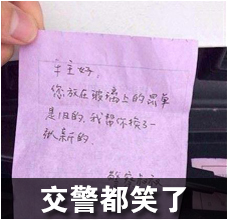 车主好,
您放在玻璃上的罚单
是旧的,我帮你换了一
张新的.
交警都笑了